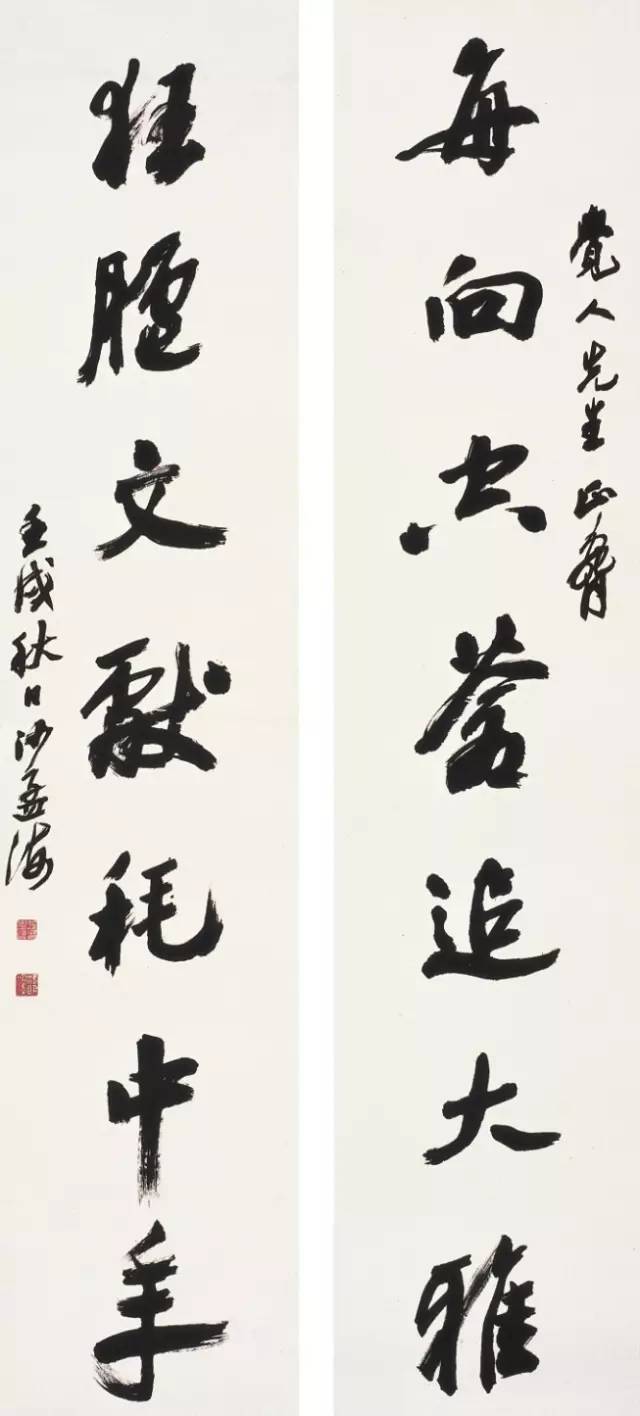 覺人先生正
每向蒼追大雅
狂臚文獻耗中年
壬戌秋日沙孟海